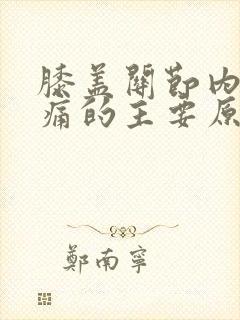 膝盖關節内
痛的主要原
鄭南寧